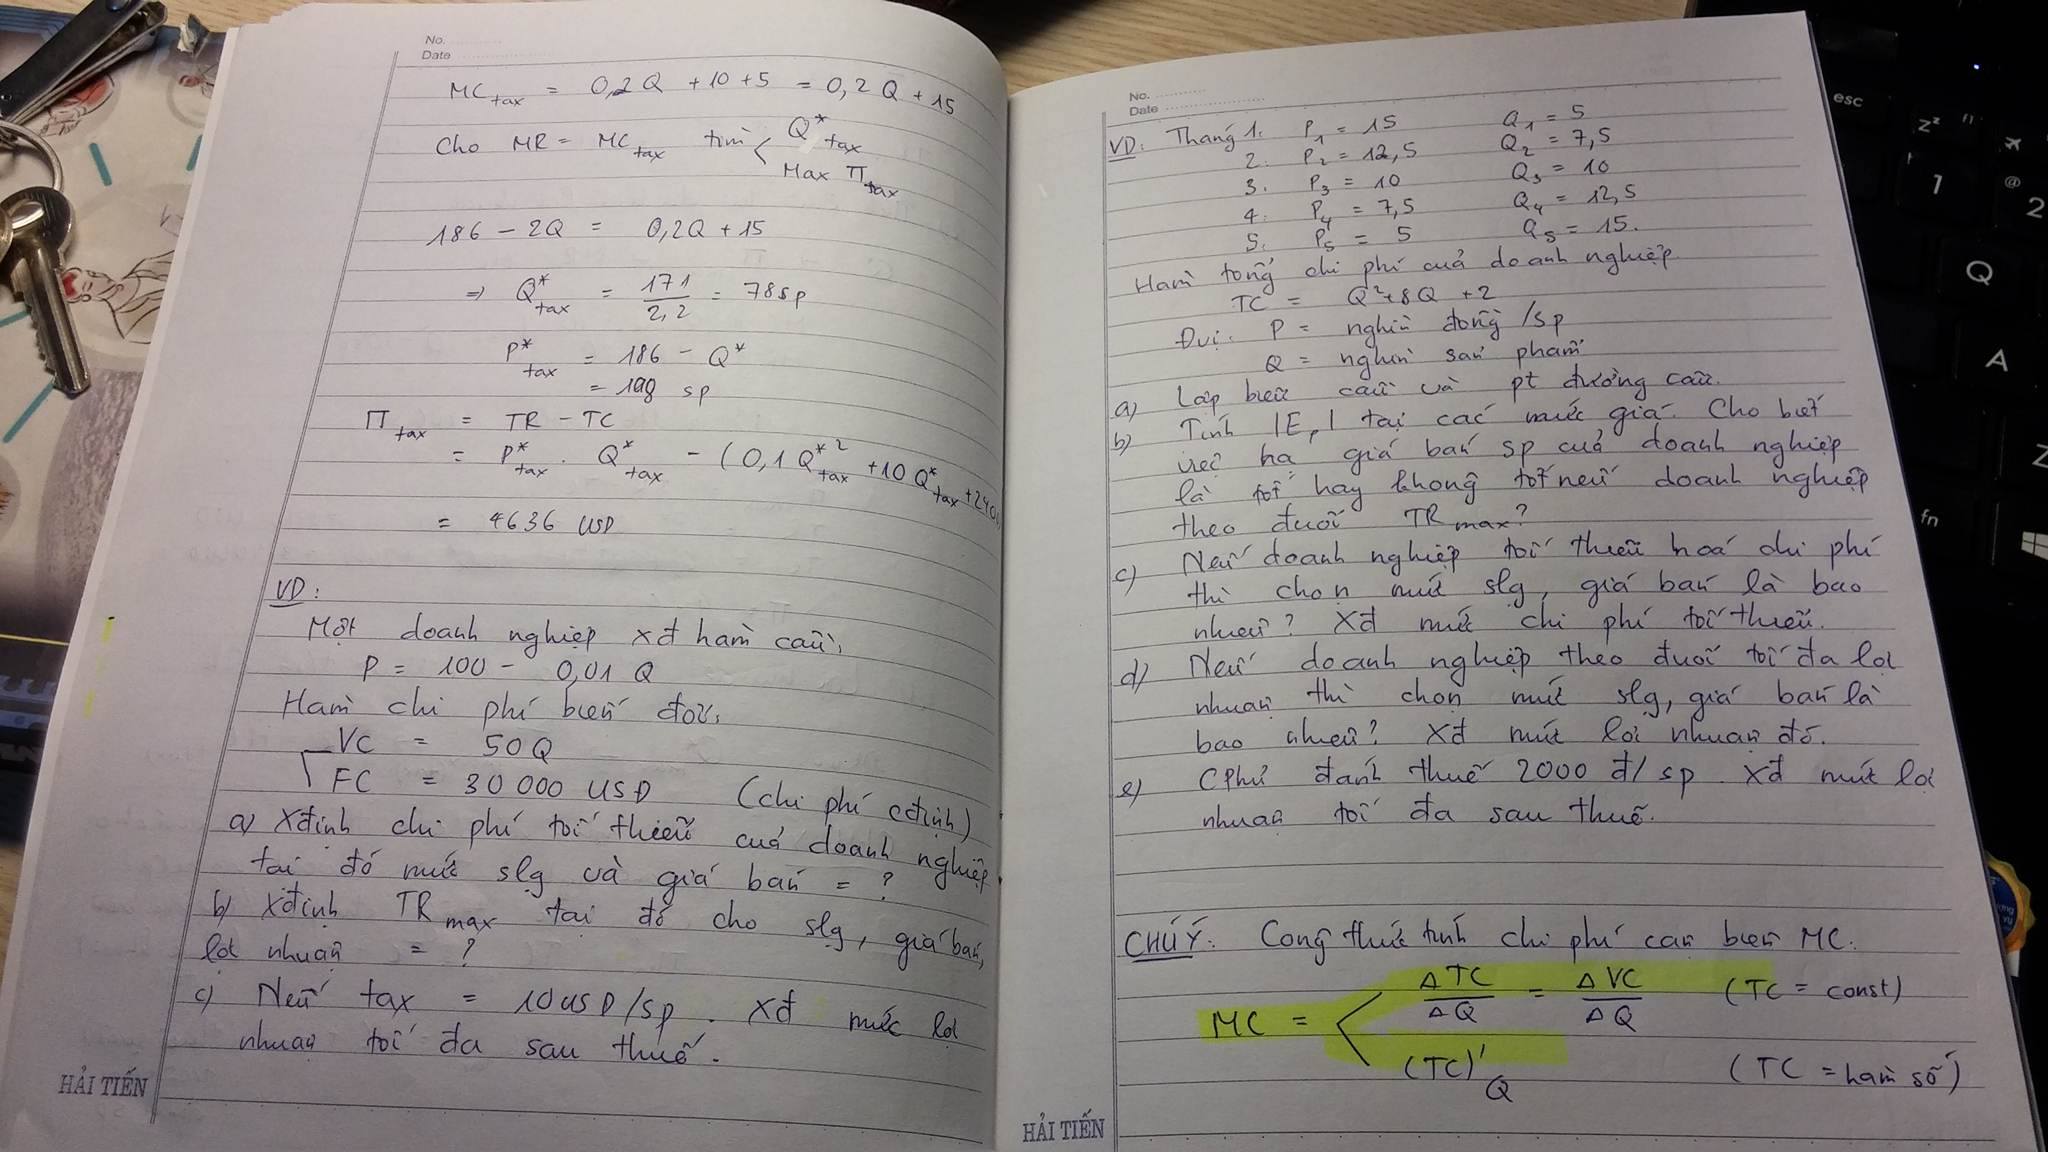 No.
Date
MCtax = 0,2Q + 10 + 5 = 0,2Q + 15
Cho MR = MCtax tìm < Q*tax
Max Πtax
186 - 2Q = 0,2Q + 15
⇒ Q*tax = 171/2,2 = 78 sp
P*tax = 186 - Q*
= 108 sp
Πtax = TR - TC
= P*tax . Q*tax - (0,1Q*²tax + 10Q*tax + 2400)
= 4636 USD
VD:
Một doanh nghiệp xđ hàm cầu:
P = 100 - 0,01Q
Hàm chi phí biến đổi:
VC = 50Q
FC = 30 000 USD (chi phí cđịnh)
a) Xđịnh chi phí tối thiểu của doanh nghiệp
tại đó mức slg và giá bán = ?
b) Xđịnh TRmax tại đó cho slg, giá bán,
lợi nhuận = ?
c) Nếu tax = 10 USD/sp. Xđ mức lợi
nhuận tối đa sau thuế.
HẢI TIẾN
No.
Date
VD: Tháng 1. P1 = 15 Q1 = 5
2. P2 = 12,5 Q2 = 7,5
3. P3 = 10 Q3 = 10
4. P4 = 7,5 Q4 = 12,5
5. P5 = 5 Q5 = 15.
Hàm tổng chi phí của doanh nghiệp.
TC = Q² + 8Q + 2
Đvị: P = nghìn đồng /sp
Q = nghìn sản phẩm
a) Lập biểu cầu và pt đường cầu.
b) Tính |Ep| tại các mức giá. Cho biết
việc hạ giá bán sp của doanh nghiệp
là tốt hay không tốt nếu doanh nghiệp
theo đuổi TRmax?
c) Nếu doanh nghiệp tối thiểu hoá chi phí
thì chọn mức slg, giá bán là bao
nhiêu? Xđ mức chi phí tối thiểu.
d) Nếu doanh nghiệp theo đuổi tối đa lợi
nhuận thì chọn mức slg, giá bán là
bao nhiêu? Xđ mức lợi nhuận đó.
e) CPhủ đánh thuế 2000 đ/sp. Xđ mức lợi
nhuận tối đa sau thuế.
CHÚ Ý: Công thức tính chi phí cận biên MC:
MC = < ΔTC/ΔQ = ΔVC/ΔQ (TC = const)
(TC)'Q (TC = hàm số)
HẢI TIẾN
esc
1
2
Q
A
Z
fn